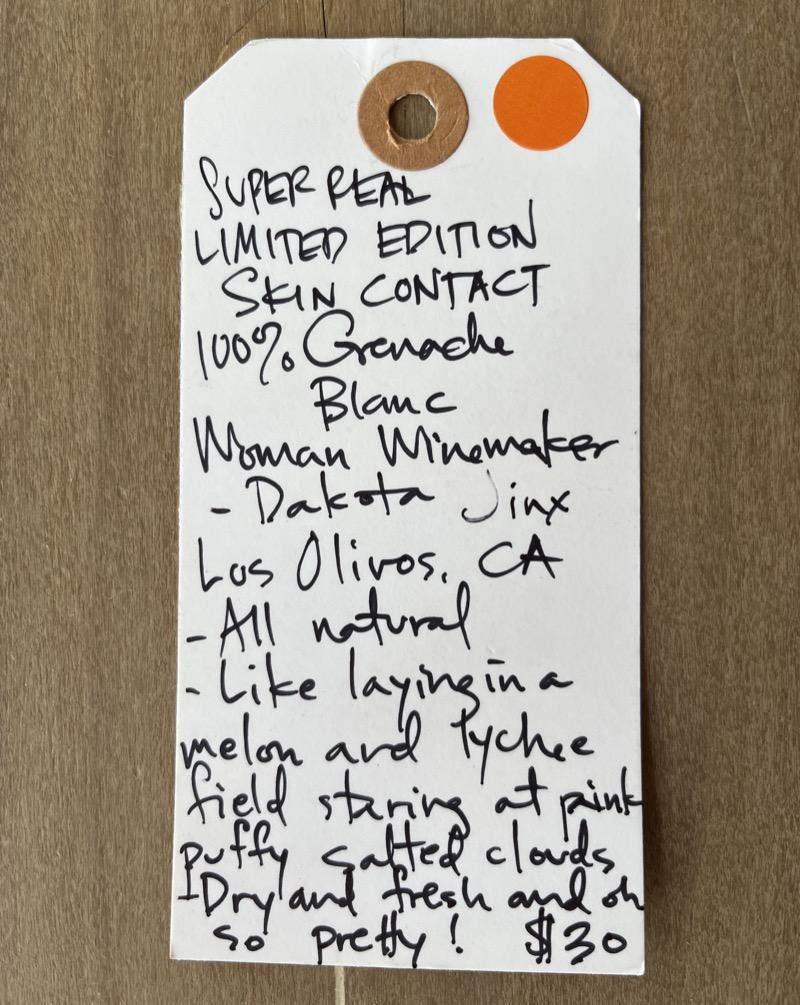 SUPER REAL
LIMITED EDITION
SKIN CONTACT
100% Grenache
Blanc
Woman Winemaker
- Dakota Jinx
Los Olivos, CA
- All natural
- Like laying in a
melon and lychee
field staring at pink
puffy salted clouds
- Dry and fresh and oh
so pretty! $30